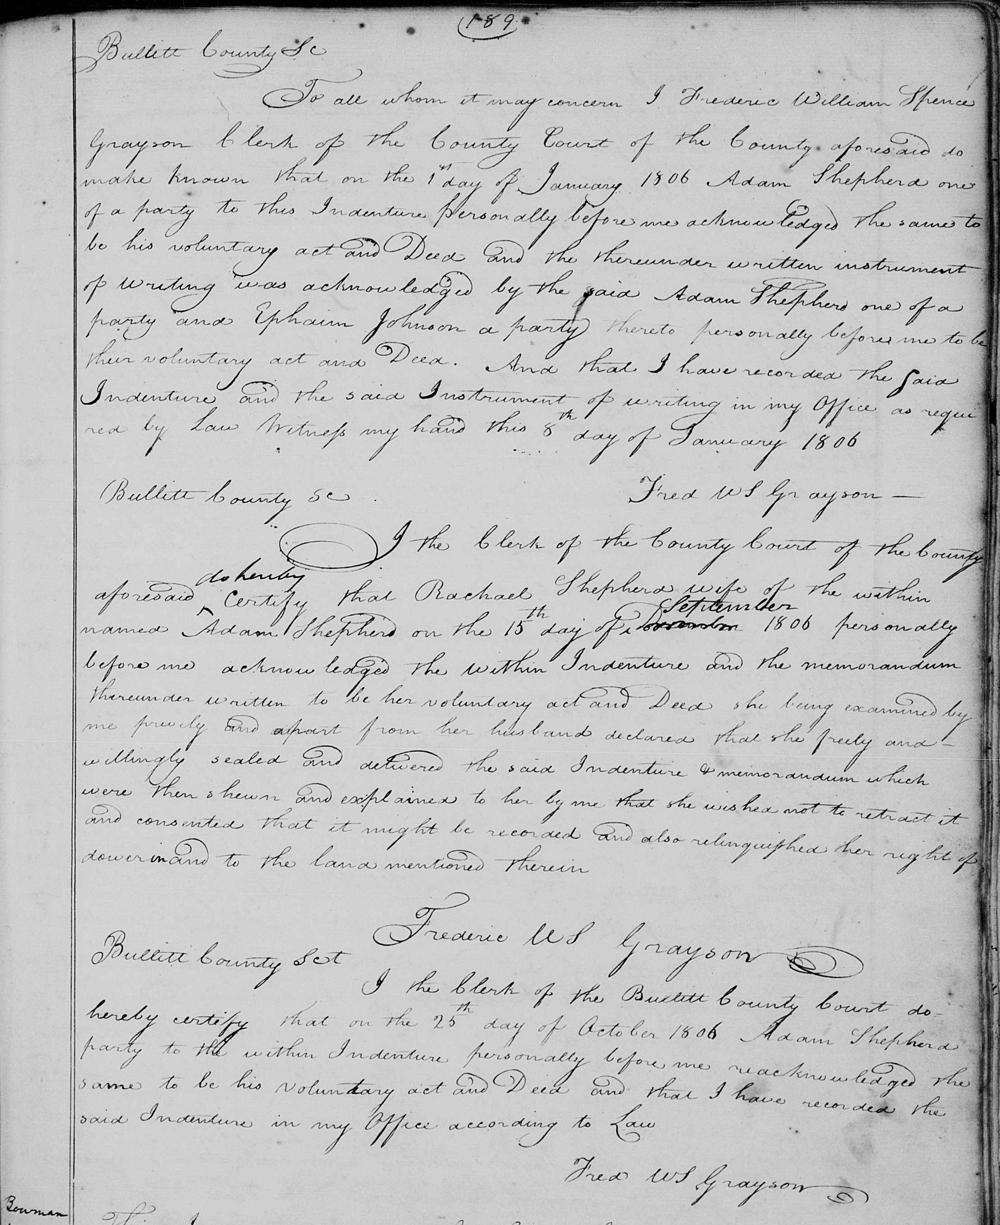 189
Bullitt County Sc
To all whom it may concern I Frederic William Spence
Grayson Clerk of the County Court of the County aforesaid do
make known that on the 1st day of January 1806 Adam Shepherd one
of a party to this Indenture personally before me acknowledged the same to
be his voluntary act and Deed and the thereunder written instrument
of writing was acknowledged by the said Adam Shepherd one of a
party and Ephaim Johnson a party thereto personally before me to be
their voluntary act and Deed. And that I have recorded the said
Indenture and the said Instrument of writing in my Office as requi
red by Law Witness my hand this 8th day of January 1806
Bullitt County Sc
Fred WS Grayson
I the Clerk of the County Court of the County
aforesaid do hereby Certify that Rachael Shepherd wife of the within
named Adam Shepherd on the 15th day of September 1806 personally
before me acknowledged the within Indenture and the memorandum
thereunder written to be her voluntary act and Deed she being examined by
me privily and apart from her husband declared that she freely and
willingly sealed and delivered the said Indenture & memorandum which
were then shewn and explained to her by me that she wished not to retract it
and consented that it might be recorded and also relinquished her right of
dower in and to the land mentioned therein
Frederic WS Grayson
Bullitt County Sct
I the Clerk of the Bullitt County Court do
hereby certify that on the 25th day of October 1806 Adam Shepherd
party to the within Indenture personally before me reacknowledged the
same to be his voluntary act and Deed and that I have recorded the
said Indenture in my Office according to Law
Fred WS Grayson
Bowman